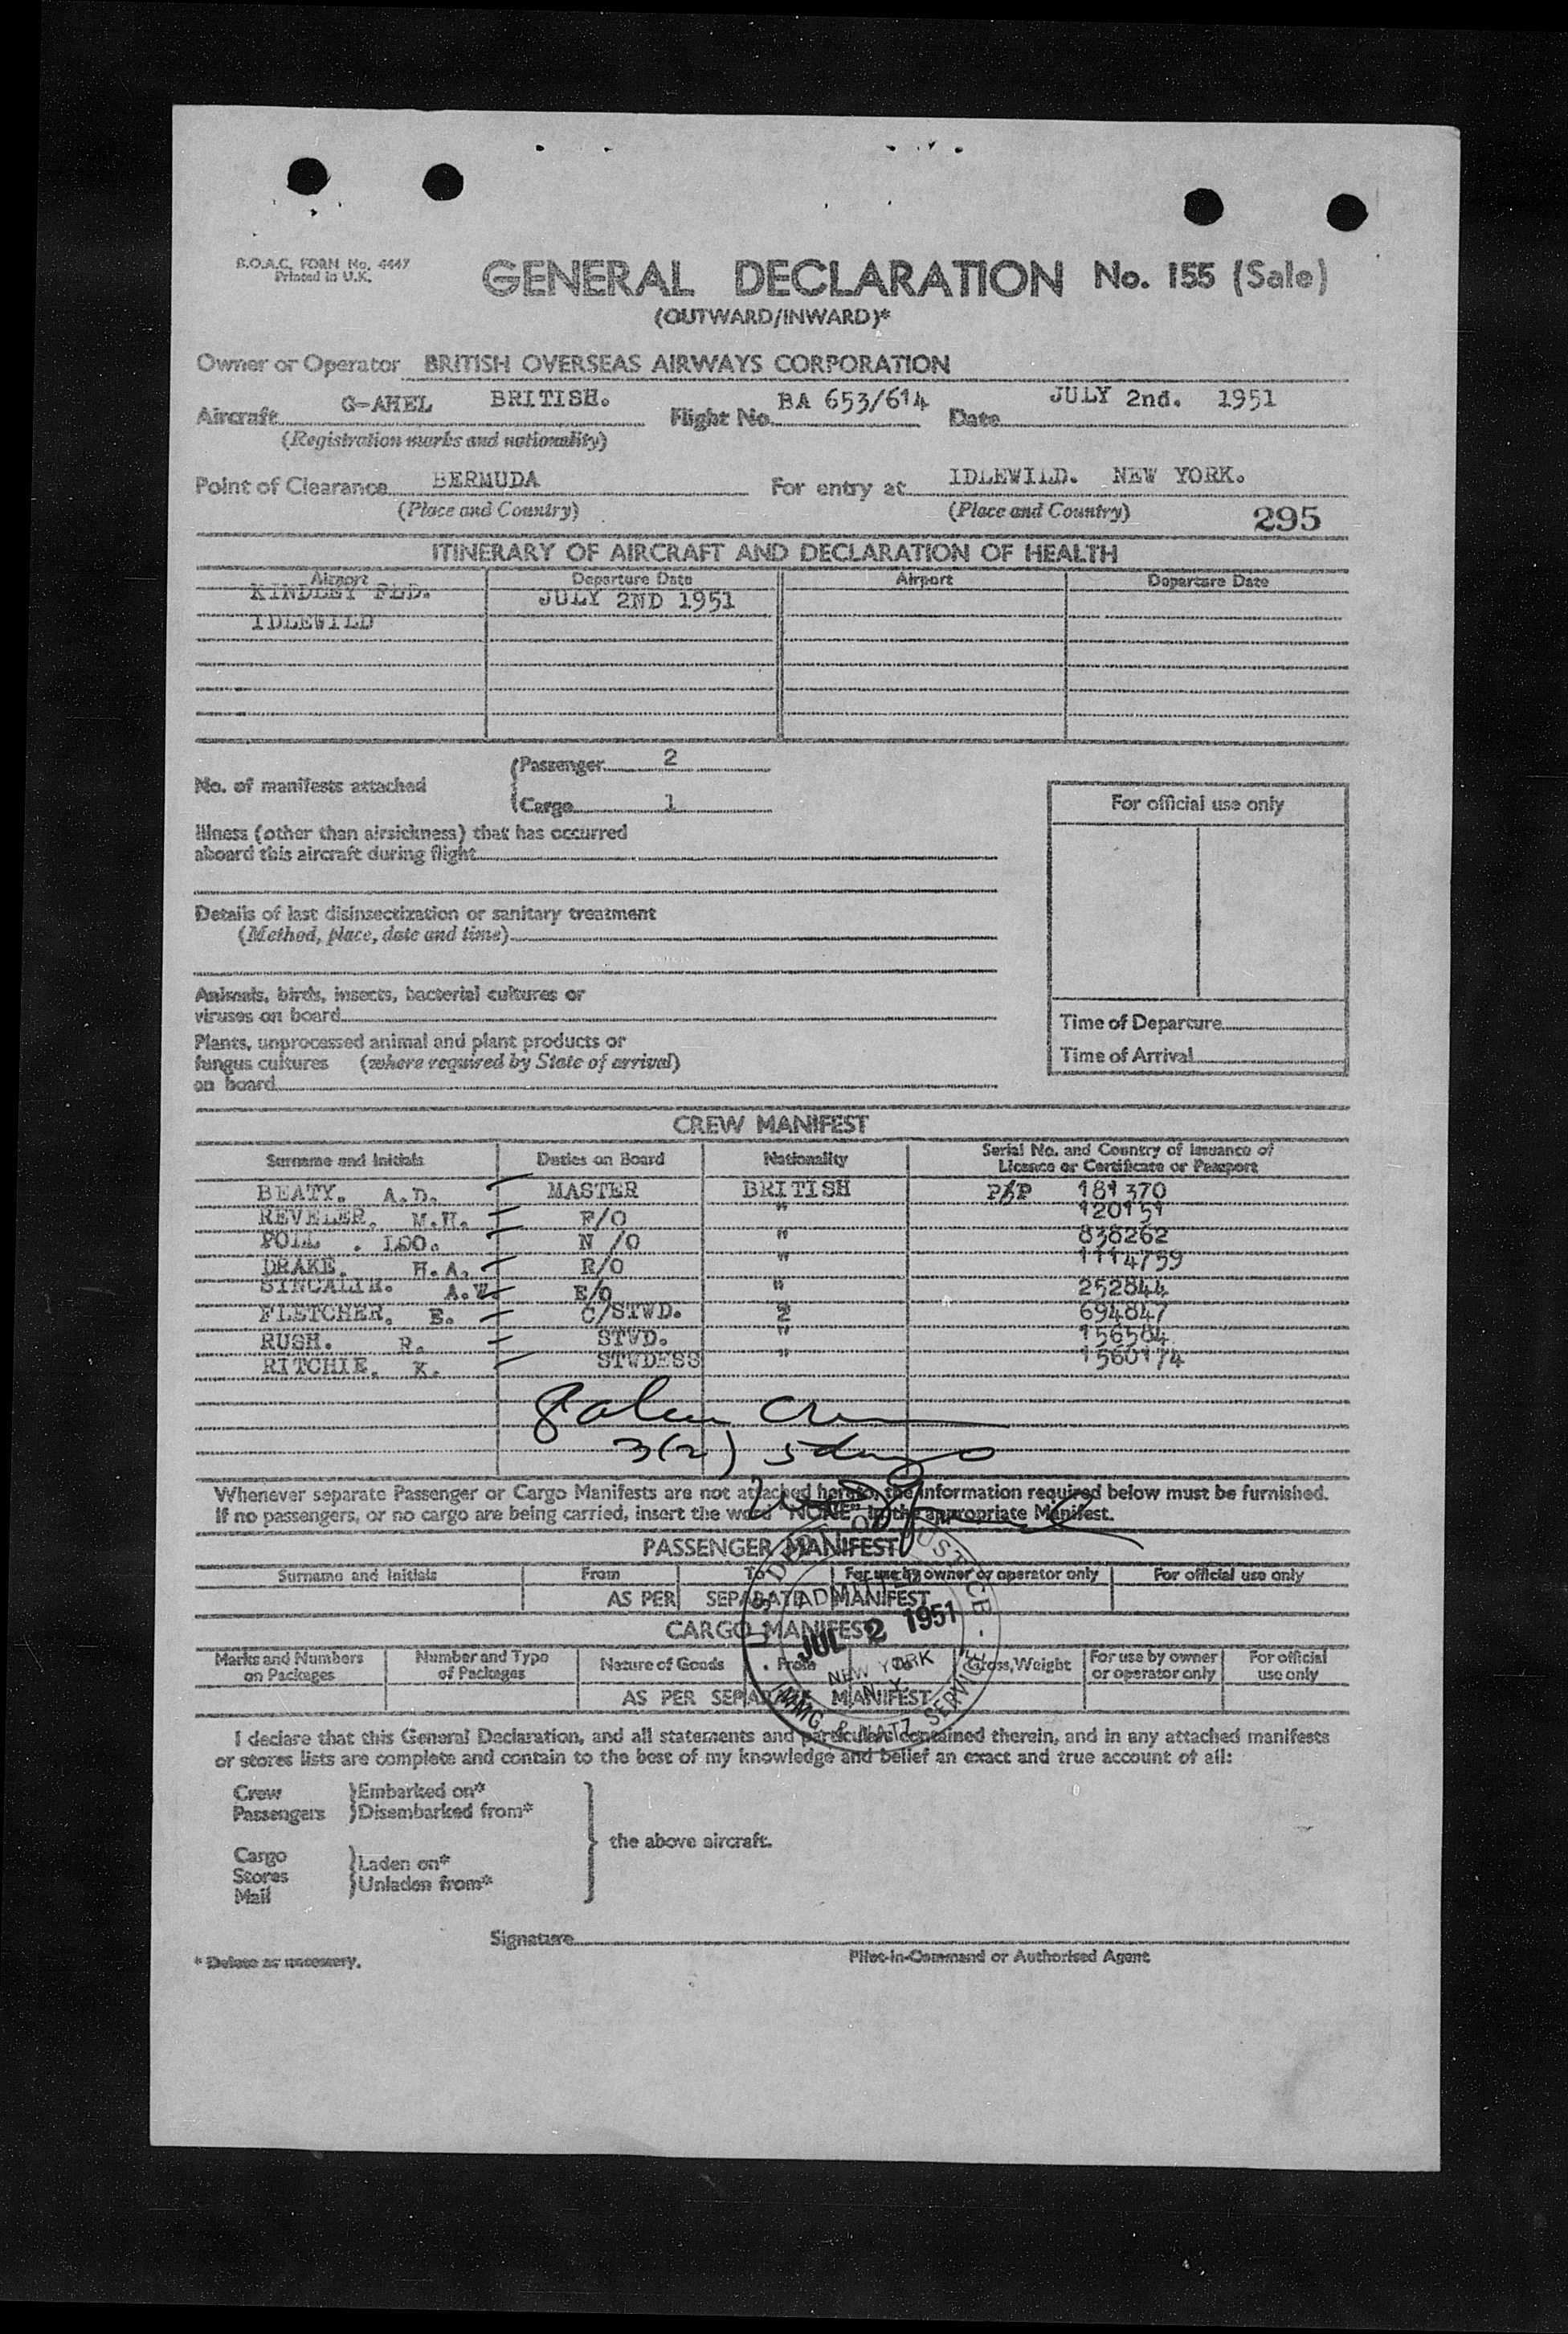 B.O.A.C. FORM No. 4447
Printed in U.K.
GENERAL DECLARATION No. 155 (Sale)
(OUTWARD/INWARD)*
Owner or Operator BRITISH OVERSEAS AIRWAYS CORPORATION
Aircraft G-AHEL BRITISH. Flight No. BA 653/614 Date JULY 2nd. 1951
(Registration marks and nationality)
Point of Clearance BERMUDA For entry at IDLEWILD. NEW YORK.
(Place and Country) (Place and Country) 295
ITINERARY OF AIRCRAFT AND DECLARATION OF HEALTH
Airport Departure Date Airport Departure Date
KINDLEY FLD. JULY 2ND 1951
IDLEWILD
No. of manifests attached
Passenger 2
Cargo 1
For official use only
Illness (other than airsickness) that has occurred
aboard this aircraft during flight
Details of last disinsectization or sanitary treatment
(Method, place, date and time)
Animals, birds, insects, bacterial cultures or
viruses on board
Time of Departure
Plants, unprocessed animal and plant products or
fungus cultures (where required by State of arrival)
on board
Time of Arrival
CREW MANIFEST
Surname and Initials Duties on Board Nationality Serial No. and Country of Issuance of
Licence or Certificate or Passport
BEATY. A.D. MASTER BRITISH P/P 181370
REVELER. M.H. F/O " 120151
FOLL . LDO. N /O " 838262
DRAKE. H.A. R/O " 1114759
SINCALIR. A.W. E/O " 252844
FLETCHER. E. C/STWD. 2 694847
RUSH. R. STWD. " 156584
RITCHIE. K. STWDESS " 1560174
3(2)
Whenever separate Passenger or Cargo Manifests are not attached hereto, the information required below must be furnished.
If no passengers, or no cargo are being carried, insert the word "NONE" in the appropriate Manifest.
PASSENGER MANIFEST
Surname and Initials From To For use by owner or operator only For official use only
AS PER SEPARATE MANIFEST
CARGO MANIFEST
Marks and Numbers on Packages Number and Type of Packages Nature of Goods From To Gross Weight For use by owner or operator only For official use only
AS PER SEPARATE MANIFEST
ADMITTED
JUL 2 1951
NEW YORK
N. Y.
IMMG. & NATZ. SERVICE
I declare that this General Declaration, and all statements and particulars contained therein, and in any attached manifests
or stores lists are complete and contain to the best of my knowledge and belief an exact and true account of all:
Crew Embarked on*
Passengers Disembarked from*
the above aircraft.
Cargo
Stores
Mail
Laden on*
Unladen from*
Signature
* Delete as necessary. Pilot-in-Command or Authorised Agent